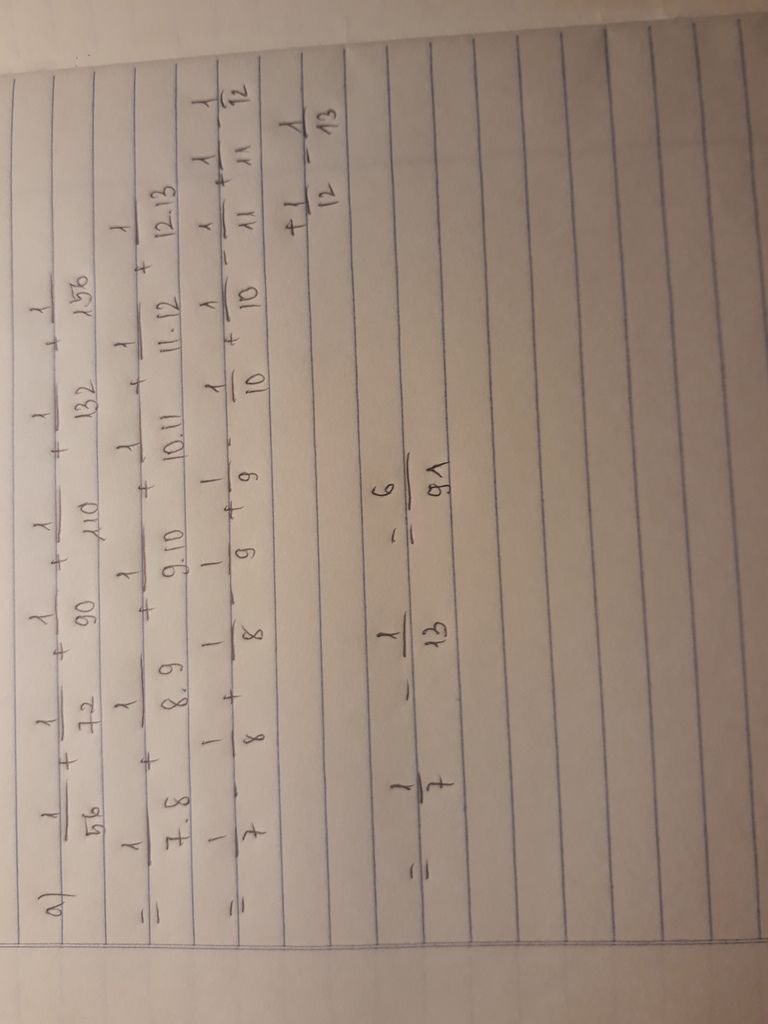 a) 1/56 + 1/72 + 1/90 + 1/110 + 1/132 + 1/156
= 1/7.8 + 1/8.9 + 1/9.10 + 1/10.11 + 1/11.12 + 1/12.13
= 1/7 - 1/8 + 1/8 - 1/9 + 1/9 - 1/10 + 1/10 - 1/11 + 1/11 - 1/12
+ 1/12 - 1/13
= 1/7 - 1/13 = 6/91